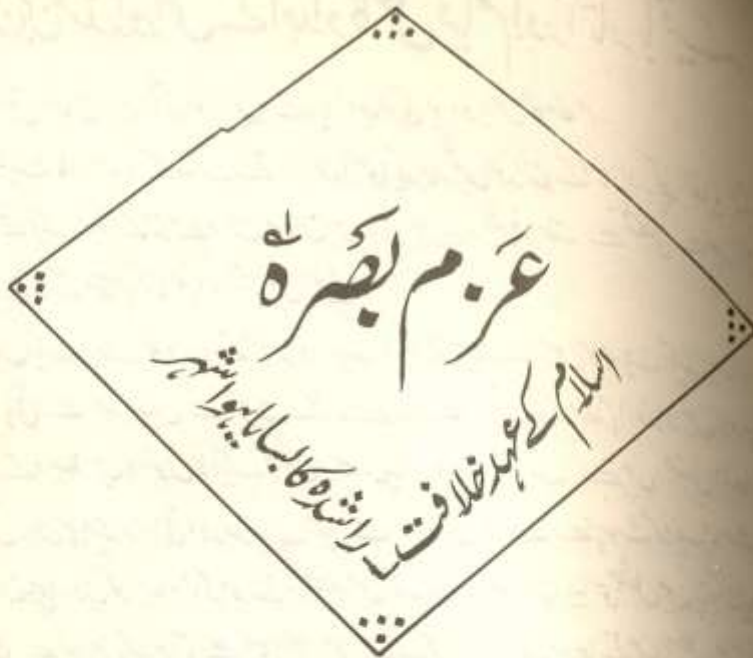 عَزمِ بَصَرہ
اسلام کے عہدِ خلافتِ راشدہ کا بسایا ہوا شہر